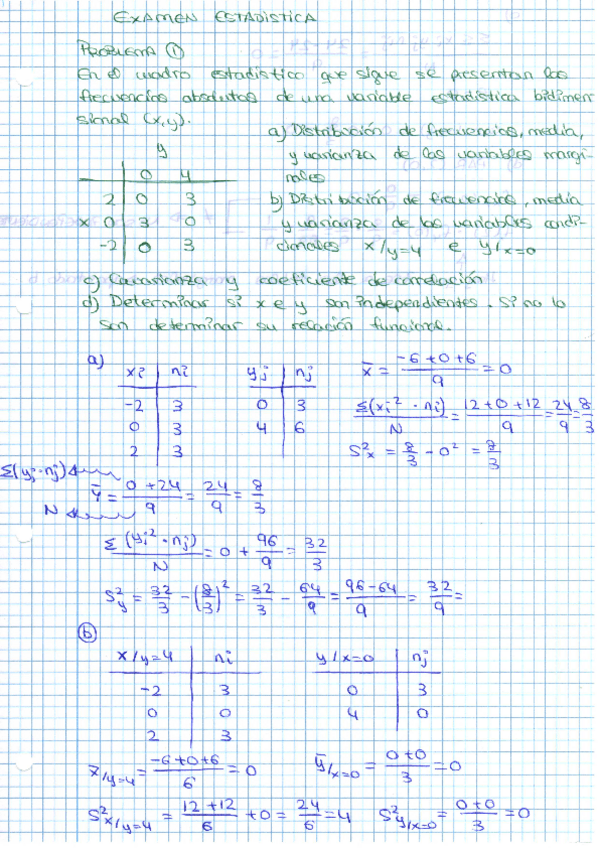 EXAMEN ESTADISTICA
PROBLEMA ①
En el cuadro estadístico que sigue se presentan las
frecuencias absolutas de una variable estadística bidimen
sional (x,y).
a) Distribución de frecuencias, media,
y varianza de las variables margi-
nales
b) Distribución de frecuencias, media
y varianza de las variables condi-
cionales x/y=4 e y/x=0
y
0 4
2 0 3
x 0 3 0
-2 0 3
c) Covarianza y coeficiente de correlación
d) Determinar si x e y son independientes. Si no lo
son determinar su relación funcional.
a)
xi ni
-2 3
0 3
2 3
yj nj
0 3
4 6
x̄ = (-6+0+6)/9 = 0
Σ(xi² · ni)/N = (12+0+12)/9 = 24/9 = 8/3
S²x = 8/3 - 0² = 8/3
Σ(yj·nj)
N
ȳ = (0+24)/9 = 24/9 = 8/3
Σ(yi² · nj)/N = 0 + 96/9 = 32/3
S²y = 32/3 - (8/3)² = 32/3 - 64/9 = (96-64)/9 = 32/9 =
ⓑ
x/y=4 ni
-2 3
0 0
2 3
y/x=0 nj
0 3
4 0
x̄/y=4 = (-6+0+6)/6 = 0
ȳ/x=0 = (0+0)/3 = 0
S²x/y=4 = (12+12)/6 + 0 = 24/6 = 4
S²y/x=0 = (0+0)/3 = 0